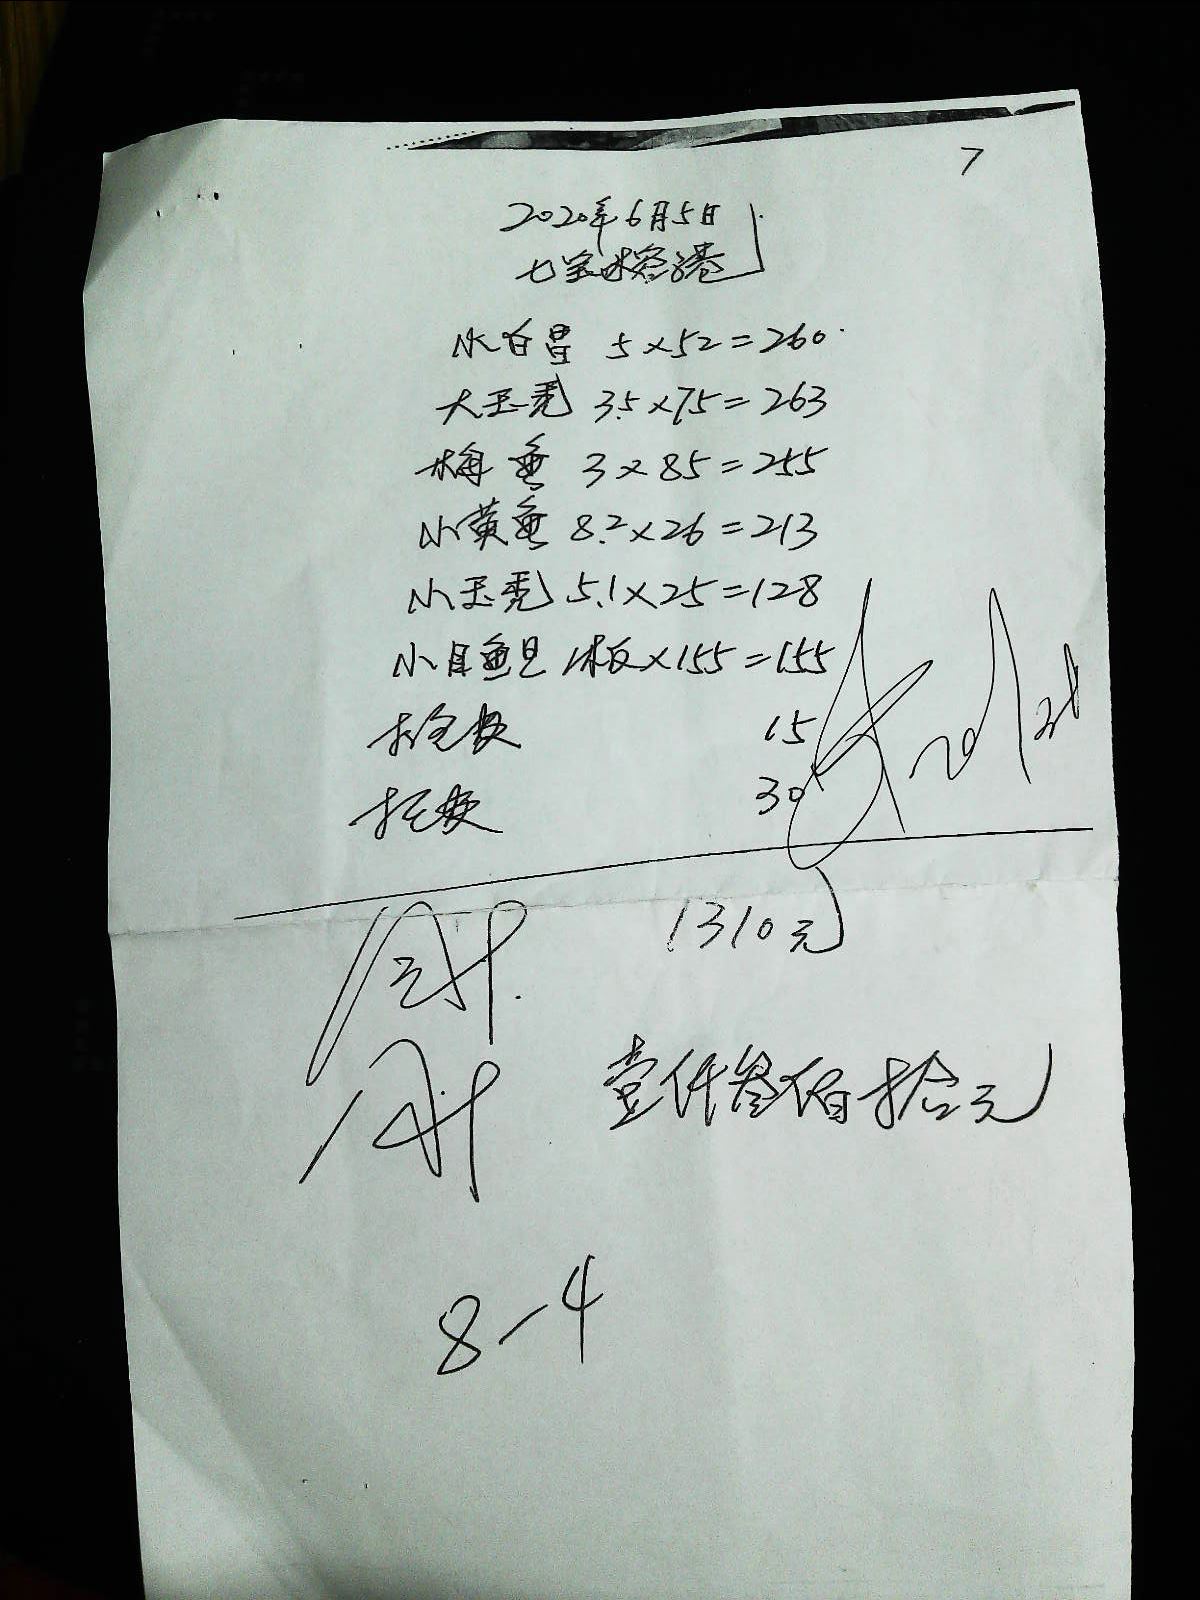 7
2020年6月5日
七宝榕港
小白昌 5×52=260
大玉秃 3.5×75=263
梅鱼 3×85=255
小黄鱼 8.2×26=213
小玉秃 5.1×25=128
小目鱼旦 1板×155=155
15
托费 30
1310元
壹仟叁佰拾元
8-4